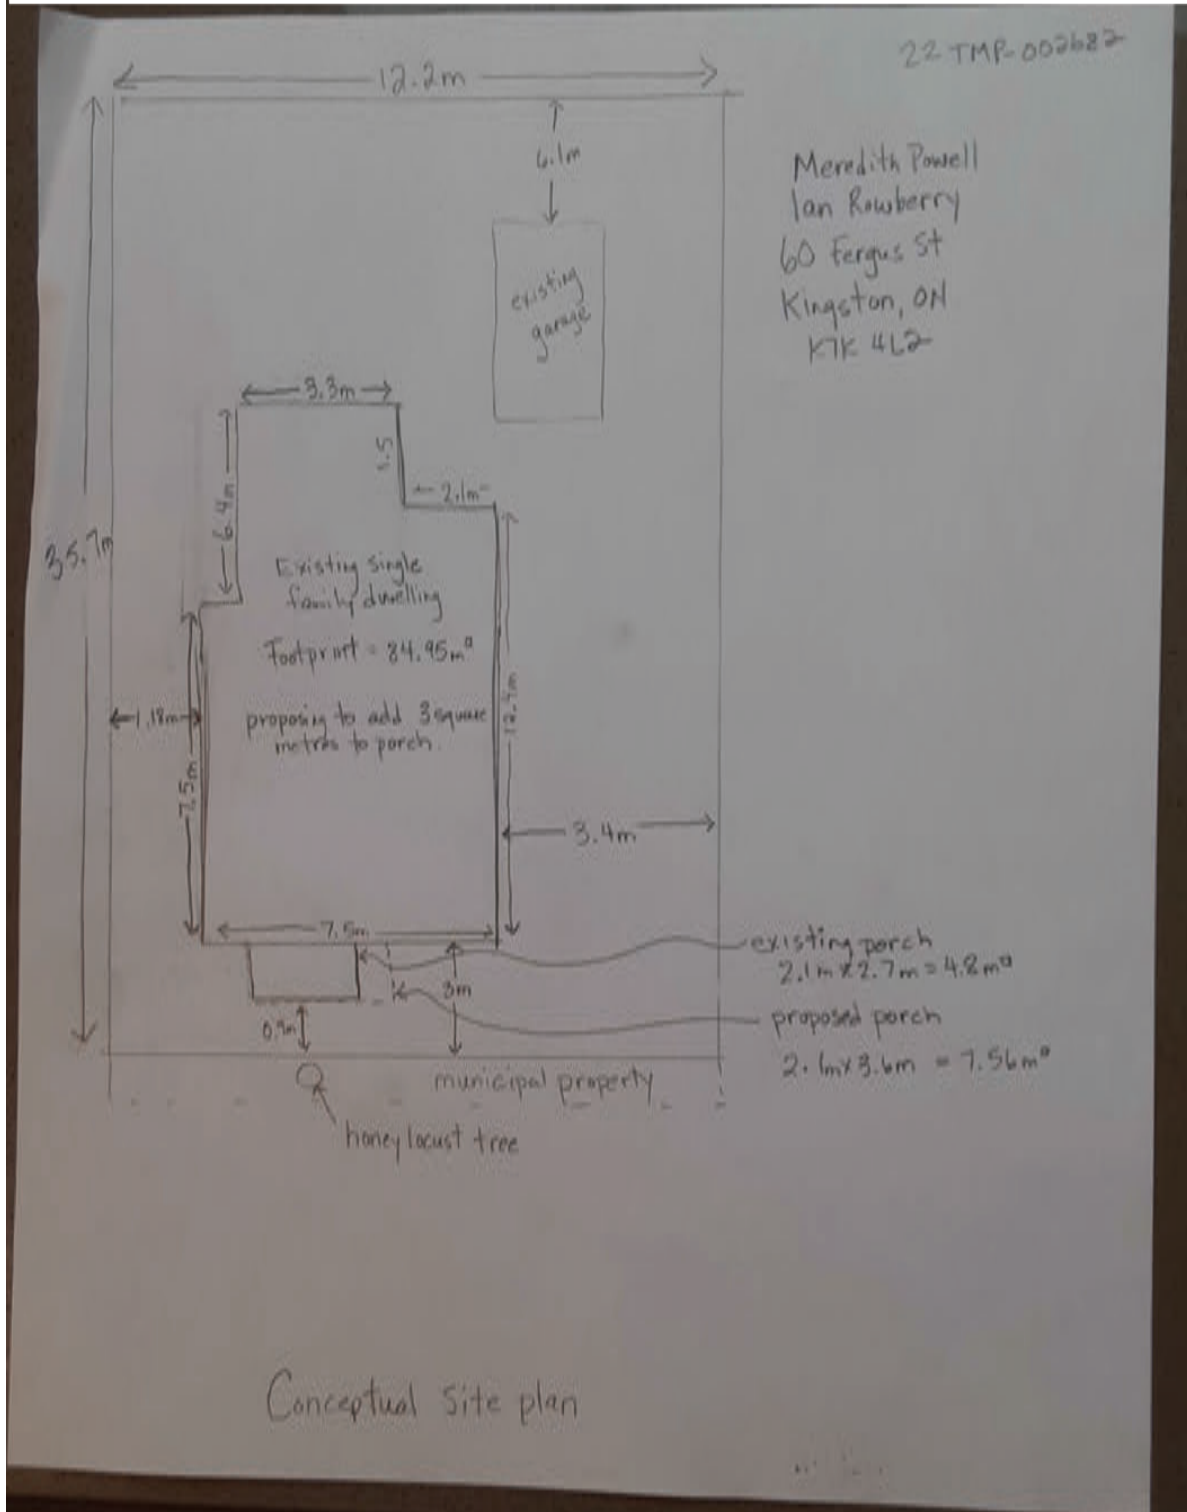 22 TMP-002682
12.2m
6.1m
Meredith Powell
Ian Rowberry
60 Fergus St
Kingston, ON
K7K 4L2
existing
garage
3.3m
1.5
2.1m
6.4m
35.7m
Existing single
family dwelling
Footprint = 84.95m²
proposing to add 3 square
metres to porch.
1.18m
7.5m
12.4m
3.4m
7.5m
existing porch
2.1m x 2.7m = 4.8m²
3m
0.9m
proposed porch
2.1m x 3.6m = 7.56m²
municipal property
honey locust tree
Conceptual Site plan